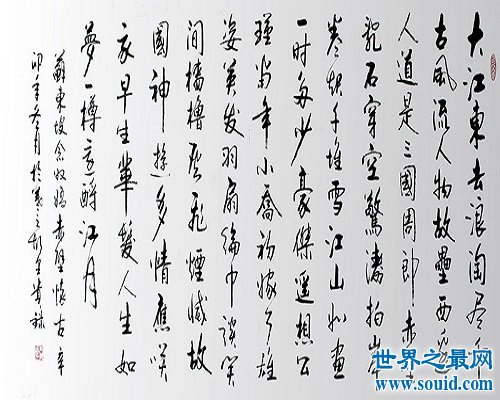 大江東去浪淘盡千
古風流人物故壘西邊
人道是三國周郎赤壁
亂石穿空驚濤拍岸
捲起千堆雪江山如畫
一時多少豪傑遙想公
瑾當年小喬初嫁了雄
姿英發羽扇綸巾談笑
間檣櫓灰飛煙滅故
國神遊多情應笑
我早生華髮人生如
夢一樽還酹江月
蘇東坡念奴嬌赤壁懷古辛
卯年冬月於
世界之最网
www.souid.com